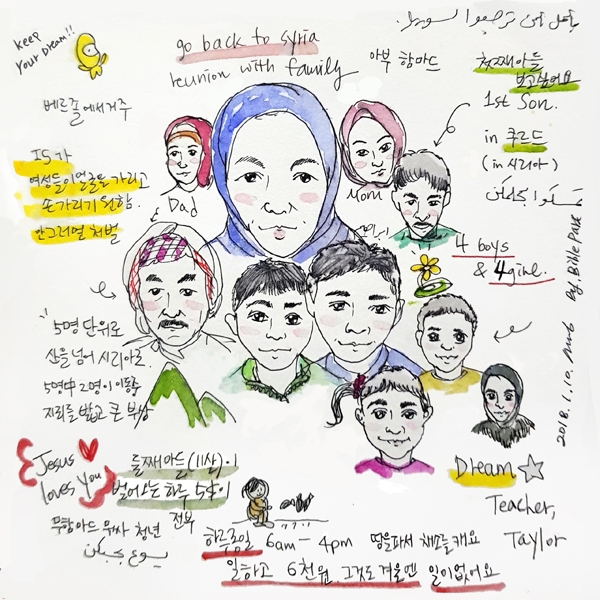 Keep
Your Dream!!
go back to syria
reunion with family
아부 함마드
첫째아들
보고싶어요
1st Son.
in 쿠르드
(in 시리아)
베르폴에서 거주
IS가
여성들이 얼굴을 가리고
손가리기 원함.
안그러면 처벌
Dad
Mom
4 boys
& 4 girl.
5명 단위로
산을 넘어 시리아로.
5명中 2명이 이동중
지뢰를 밟고 큰 부상
Jesus
loves You
둘째아들(11살)이
벌어오는 하루 5$이
전부
무함마드 위싸 청년
하루종일 6am - 4pm 땅을파서 채소를 캐요
일하고 6천원. 그것도 겨울엔 일이없어요
Dream
Teacher,
Taylor
2018.1.10.
By. Bible Pase